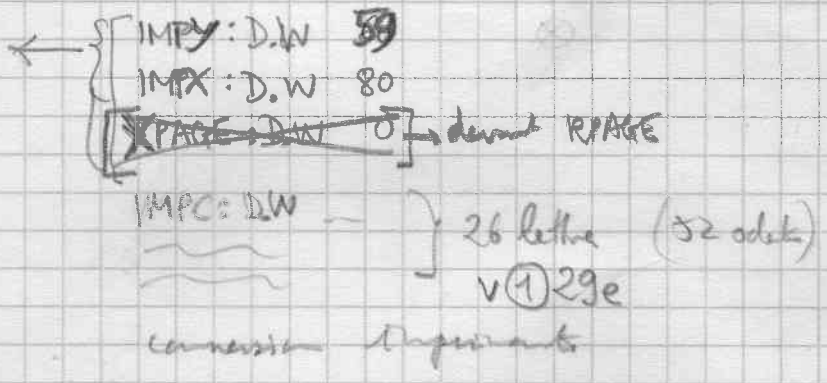 IMPY: D.W 59
IMPX: D.W 80
KPAGE: D.W 0 → devant KPAGE
IMPC: D.W
26 lettre (52 octets)
v ① 29e
conversion imprimante